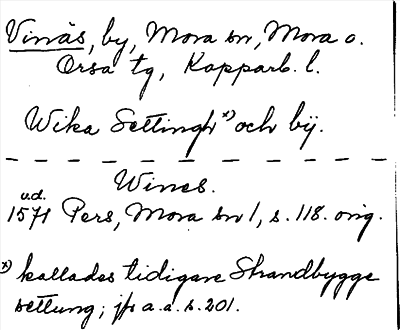 Vinäs, by, Mora sn, Mora o.
Orsa tg, Kopparb. l.
Wika Settingh x) och bij.
Wines.
u.d.
1571 Pers, Mora sn 1, s. 118. orig.
x) kallades tidigare Strandbygge
settung; jfr a.a. s. 201.